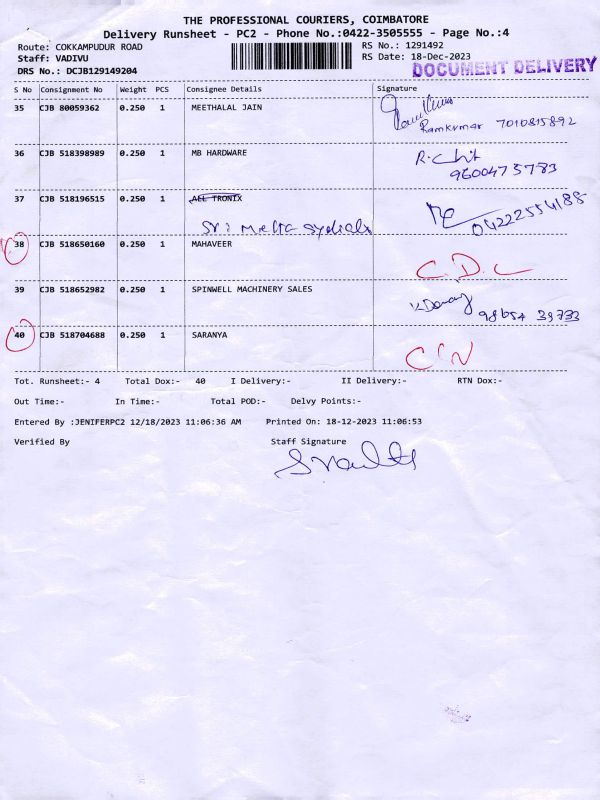 THE PROFESSIONAL COURIERS, COIMBATORE
Delivery Runsheet - PC2 - Phone No.:0422-3505555 - Page No.:4
Route: COKKAMPUDUR ROAD
RS No.: 1291492
Staff: VADIVU
RS Date: 18-Dec-2023
DRS No.: DCJB129149204
DOCUMENT DELIVERY
S No Consignment No Weight PCS Consignee Details Signature
35 CJB 80059362 0.250 1 MEETHALAL JAIN
Ramkumar 7010815892
36 CJB 518398989 0.250 1 MB HARDWARE
9600475783
37 CJB 518196515 0.250 1 AEL TRONIX
04222554188
Sri
38 CJB 518650160 0.250 1 MAHAVEER
C.D.L
39 CJB 518652982 0.250 1 SPINWELL MACHINERY SALES
98654 39733
40 CJB 518704688 0.250 1 SARANYA
C'N
Tot. Runsheet:- 4 Total Dox:- 40 I Delivery:- II Delivery:- RTN Dox:-
Out Time:- In Time:- Total POD:- Delvy Points:-
Entered By :JENIFERPC2 12/18/2023 11:06:36 AM Printed On: 18-12-2023 11:06:53
Verified By Staff Signature